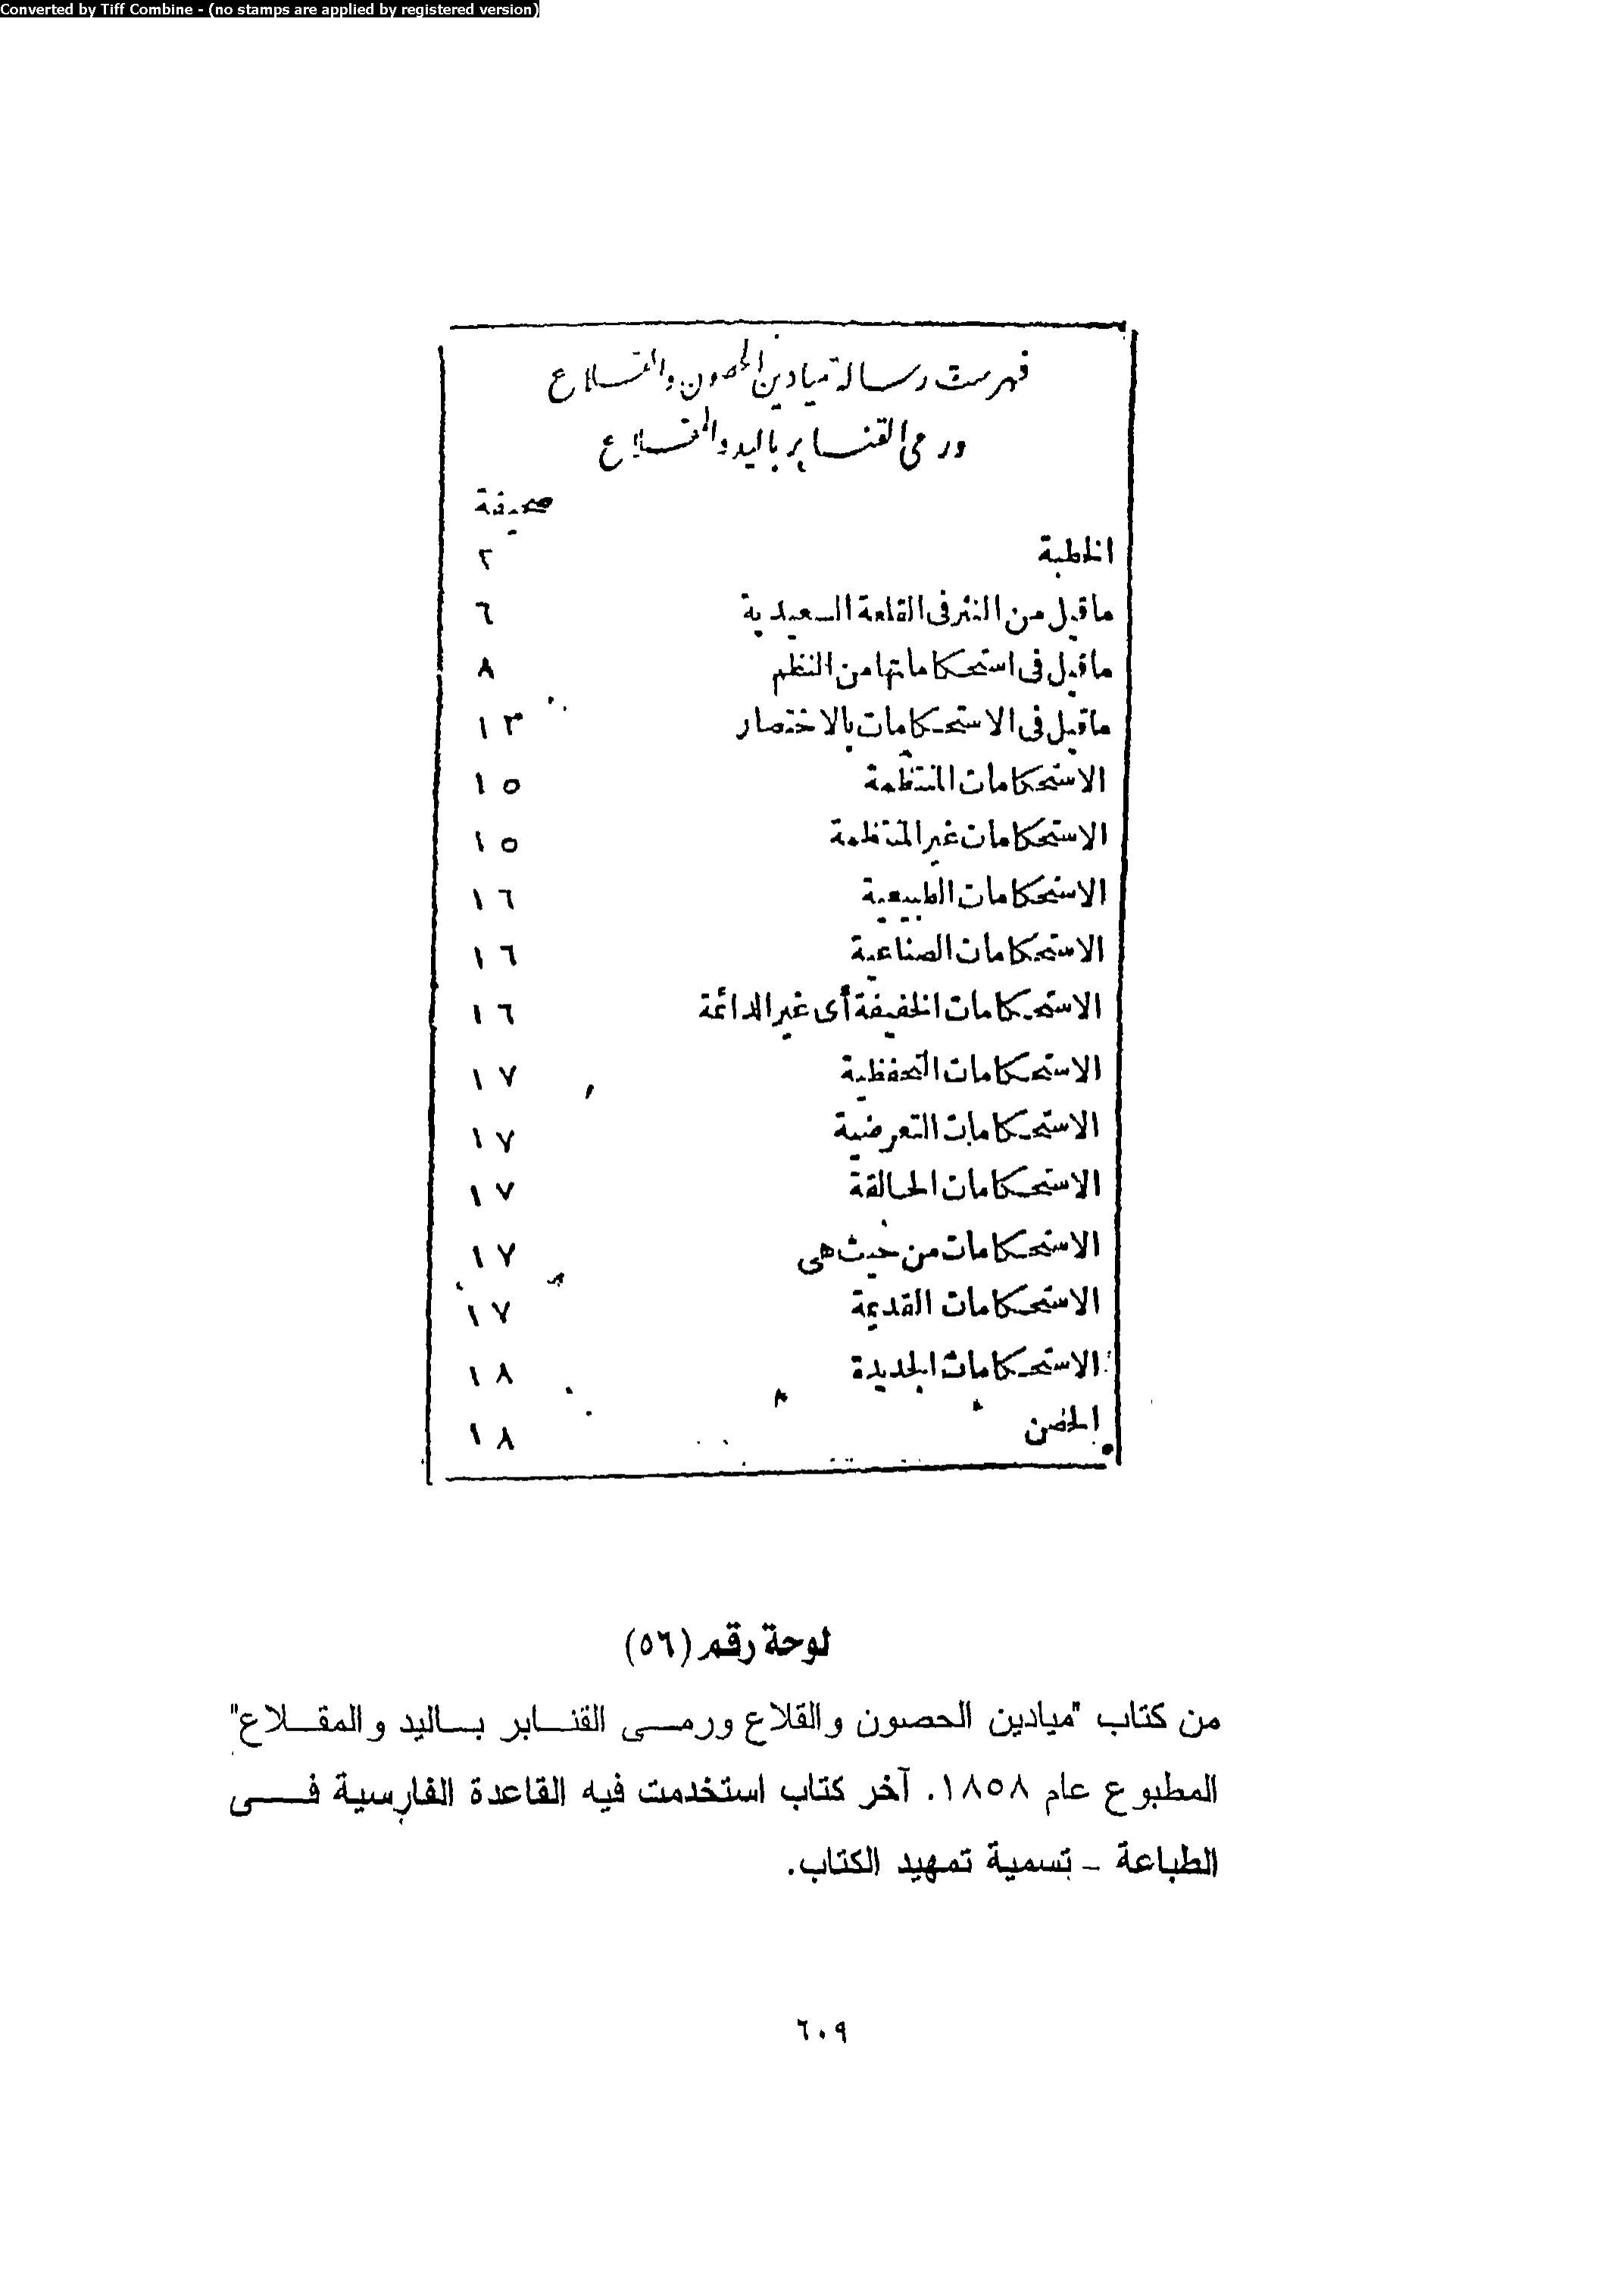 Converted by Tiff Combine - (no stamps are applied by registered version)
فهرست رسالة ميادين الحصون والقلاع
ورمى القنابر باليد والمقلاع
صحيفة
الخطبة ٢
ماقيل من النثر فى القلعة السعيدية ٦
ماقيل فى استحكاماتها من النظم ٨
ماقيل فى الاستحكامات بالاختصار ١٣
الاستحكامات المنتظمة ١٥
الاستحكامات غير المنتظمة ١٥
الاستحكامات الطبيعية ١٦
الاستحكامات الصناعية ١٦
الاستحكامات الخفيفة أى غير الدائمة ١٦
الاستحكامات التحفظية ١٧
الاستحكامات التعرضية ١٧
الاستحكامات الحالقة ١٧
الاستحكامات من حيث هى ١٧
الاستحكامات القديمة ١٧
الاستحكامات الجديدة ١٨
الحصن ١٨
لوحة رقم (٥٦)
من كتاب "ميادين الحصون والقلاع ورمى القنابر باليد والمقلاع"
المطبوع عام ١٨٥٨. آخر كتاب استخدمت فيه القاعدة الفارسية فى
الطباعة - تسمية تمهيد الكتاب.
٦٠٩